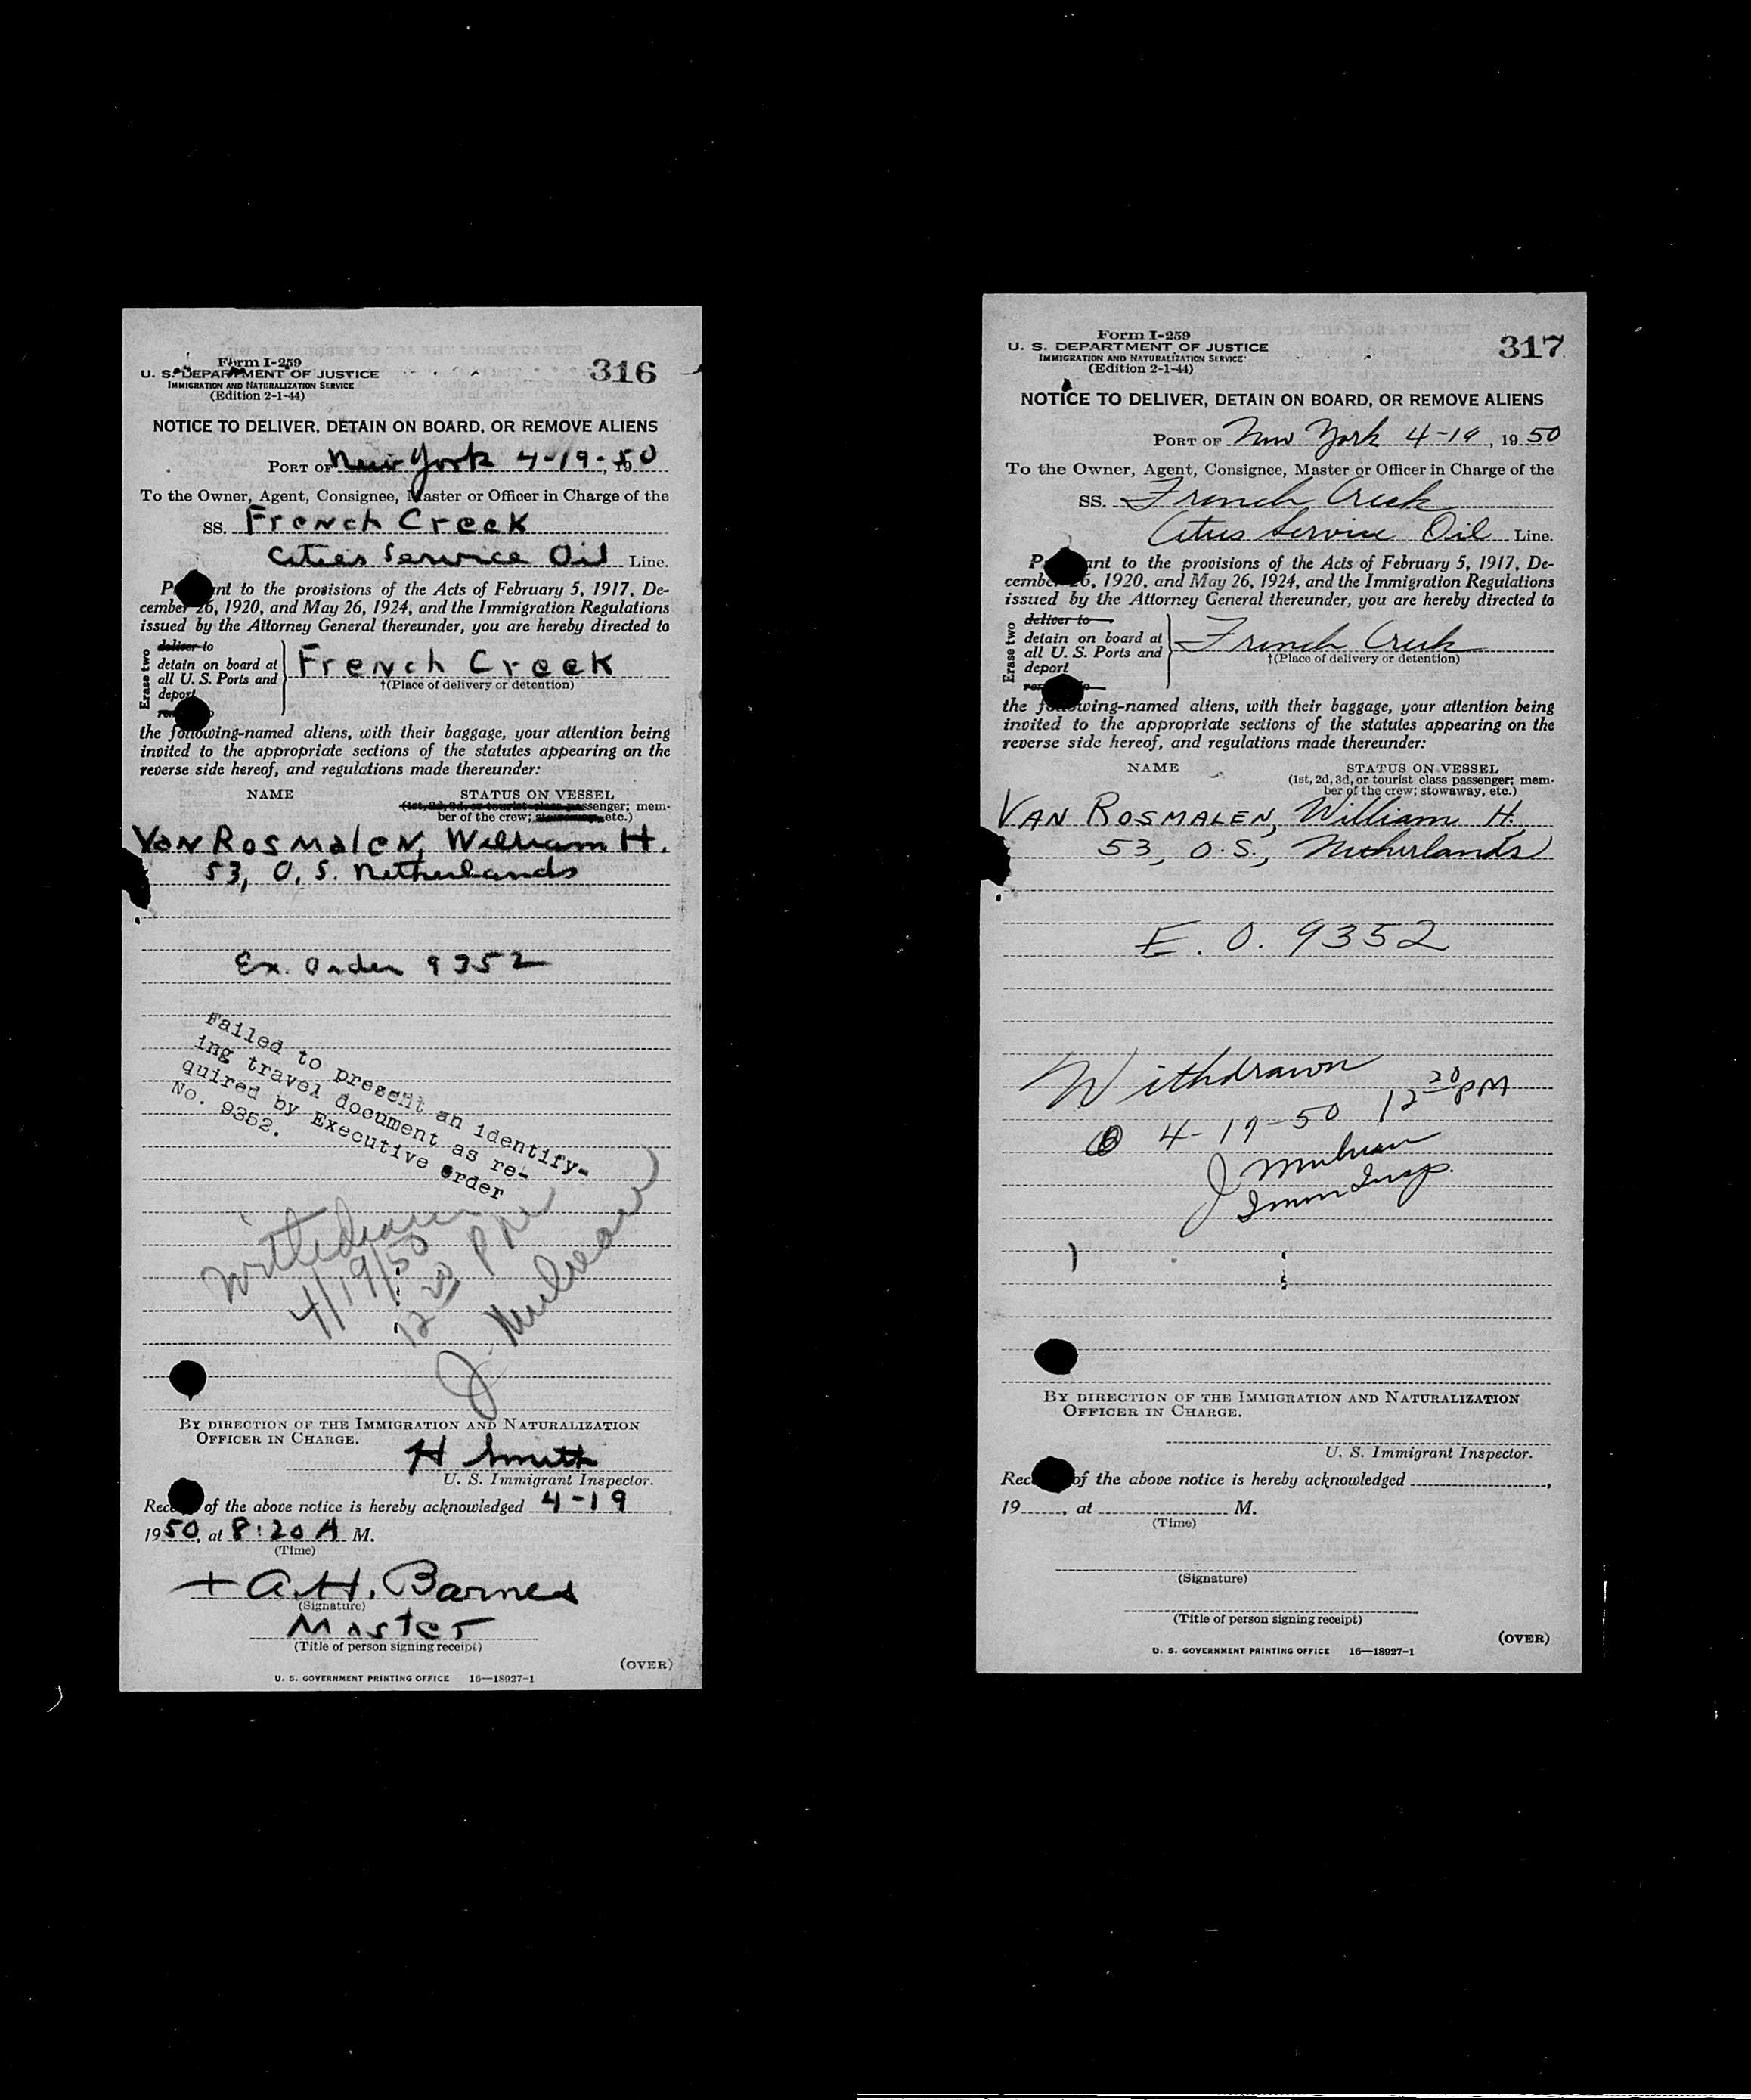 Form I-259
U. S. DEPARTMENT OF JUSTICE
IMMIGRATION AND NATURALIZATION SERVICE
(Edition 2-1-44)
316
NOTICE TO DELIVER, DETAIN ON BOARD, OR REMOVE ALIENS
PORT OF New York 4-19-, 1950
To the Owner, Agent, Consignee, Master or Officer in Charge of the
SS. French Creek
Cities Service Oil Line.
P nt to the provisions of the Acts of February 5, 1917, De-
cember 26, 1920, and May 26, 1924, and the Immigration Regulations
issued by the Attorney General thereunder, you are hereby directed to
Erase two
deliver to
detain on board at
all U. S. Ports and
deport
French Creek
†(Place of delivery or detention)
the following-named aliens, with their baggage, your attention being
invited to the appropriate sections of the statutes appearing on the
reverse side hereof, and regulations made thereunder:
NAME STATUS ON VESSEL
(1st, 2d, 3d, or tourist class passenger; mem-
ber of the crew; stowaway, etc.)
VAN ROSMALEN, William H.
53, O. S. Netherlands
Ex. Order 9352
Failed to present an identify-
ing travel document as re-
quired by Executive Order
No. 9352.
Withdrawn
4/19/50
12 20 PM
J. Mulrean
BY DIRECTION OF THE IMMIGRATION AND NATURALIZATION
OFFICER IN CHARGE.
H Smith
U. S. Immigrant Inspector.
Rec of the above notice is hereby acknowledged 4-19,
1950, at 8:20 A M.
(Time)
+ A.H. Barnes
(Signature)
Master
(Title of person signing receipt)
(OVER)
U. S. GOVERNMENT PRINTING OFFICE 16—18927-1
Form I-259
U. S. DEPARTMENT OF JUSTICE
IMMIGRATION AND NATURALIZATION SERVICE
(Edition 2-1-44)
317
NOTICE TO DELIVER, DETAIN ON BOARD, OR REMOVE ALIENS
PORT OF New York 4-19, 1950
To the Owner, Agent, Consignee, Master or Officer in Charge of the
SS. French Creek
Cities Service Oil Line.
P ant to the provisions of the Acts of February 5, 1917, De-
cember 26, 1920, and May 26, 1924, and the Immigration Regulations
issued by the Attorney General thereunder, you are hereby directed to
Erase two
deliver to
detain on board at
all U. S. Ports and
deport
French Creek
†(Place of delivery or detention)
the following-named aliens, with their baggage, your attention being
invited to the appropriate sections of the statutes appearing on the
reverse side hereof, and regulations made thereunder:
NAME STATUS ON VESSEL
(1st, 2d, 3d, or tourist class passenger; mem-
ber of the crew; stowaway, etc.)
VAN ROSMALEN, William H.
53, O.S., Netherlands
E. O. 9352
Withdrawn
4-19-50 12 20 PM
J Mulrean
Imm Insp.
BY DIRECTION OF THE IMMIGRATION AND NATURALIZATION
OFFICER IN CHARGE.
U. S. Immigrant Inspector.
Rec of the above notice is hereby acknowledged ,
19 , at M.
(Time)
(Signature)
(Title of person signing receipt)
(OVER)
U. S. GOVERNMENT PRINTING OFFICE 16—18927-1